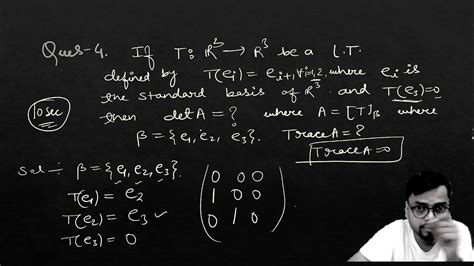 Ques-4. If T: ℝ² → ℝ³ be a L.T.
defined by T(eᵢ) = eᵢ₊₁, ∀i=1,2, where eᵢ is
10 sec
the standard basis of ℝ³ and T(e₃)=0
then det A = ? where A = [T]β where
β = {e₁, e₂, e₃}. Trace A = ?
Trace A = 0
Sol:- β = {e₁, e₂, e₃}.
T(e₁) = e₂
T(e₂) = e₃ ✓
T(e₃) = 0
0 0 0
1 0 0
0 1 0